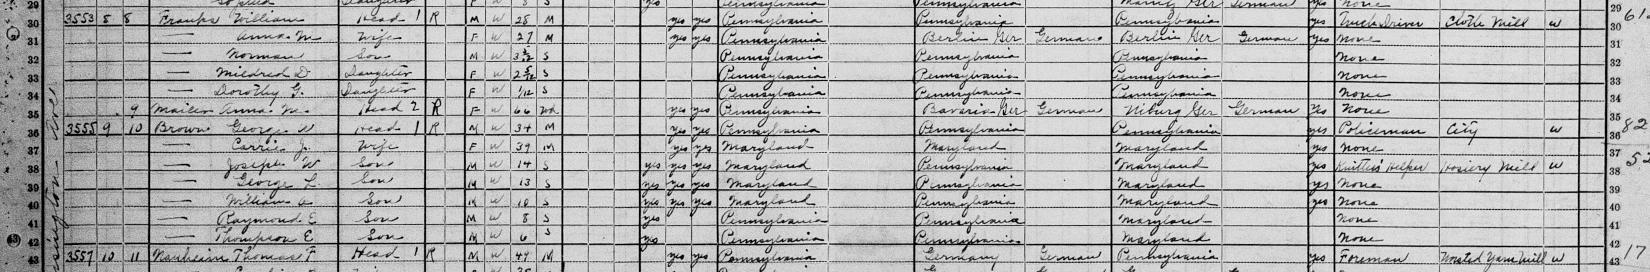 29 Daughter F W 8 S yes Pennsylvania Pennsylvania German yes None 29
30 3553 8 8 William Head 1 R M W 28 M yes yes Pennsylvania Pennsylvania Pennsylvania yes Driver Cloth Mill w 30 61
31 — Anna M Wife F W 27 M yes yes Pennsylvania Berlin Ger German Berlin Ger German yes None 31
32 — Norman Son M W S Pennsylvania Pennsylvania Pennsylvania None 32
33 — Mildred D. Daughter F W S Pennsylvania Pennsylvania Pennsylvania None 33
34 — Dorothy G. Daughter F W 1/12 S Pennsylvania Pennsylvania Pennsylvania None 34
35 9 Anna M. Head 2 R F W 66 Wd yes yes Pennsylvania Bavaria Ger German Ger German Yes None 35
36 3555 9 10 Brown George W Head 1 R M W 34 M yes yes Pennsylvania Pennsylvania Pennsylvania yes Policeman City w 36 82
37 — Carrie J. Wife F W 39 M yes yes Maryland Maryland Maryland yes None 37
38 — Joseph W Son M W 14 S yes yes yes Maryland Pennsylvania Maryland yes Knitters Helper Hosiery Mill w 38
39 — George L. Son M W 13 S yes yes yes Maryland Pennsylvania Maryland yes None 39
40 — William Son M W 10 S yes yes yes Maryland Pennsylvania Maryland yes None 40
41 — Raymond E Son M W 8 S yes Pennsylvania Pennsylvania Maryland None 41
42 — Thompson E Son M W 6 S yes Pennsylvania Pennsylvania Maryland None 42
43 3557 10 11 Thomas F Head 1 R M W 49 M yes yes Pennsylvania Germany German Pennsylvania yes Foreman Worsted Yarn Mill w 43 17